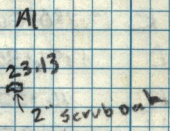 Al
23.13
2" scrub oak